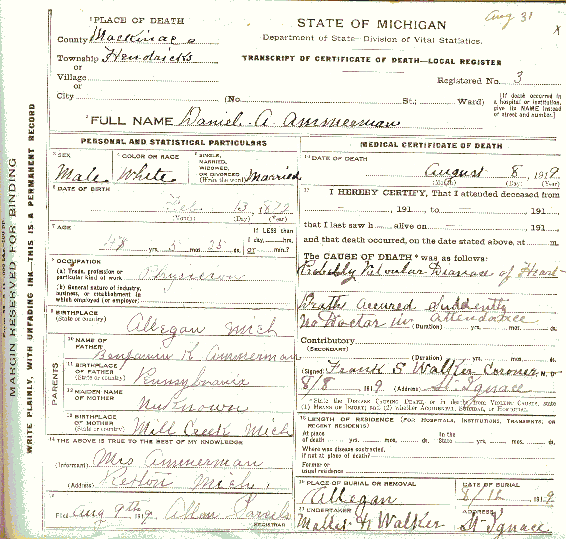 Aug 31
x
PLACE OF DEATH
County Mackinac
Township Hendricks
or
Village
or
City (No. St.; Ward)
STATE OF MICHIGAN
Department of State—Division of Vital Statistics.
TRANSCRIPT OF CERTIFICATE OF DEATH—LOCAL REGISTER
Registered No. 3
[If death occurred in a hospital or institution, give its NAME instead of street and number.]
FULL NAME Daniel A Ammerman
MARGIN RESERVED FOR BINDING
WRITE PLAINLY, WITH UNFADING INK—THIS IS A PERMANENT RECORD
PERSONAL AND STATISTICAL PARTICULARS
SEX
Male
COLOR OR RACE
White
SINGLE,
MARRIED,
WIDOWED,
OR DIVORCED
(Write the word) Married
DATE OF BIRTH
Feb 13
(Month) (Day) (Year)
AGE
yrs. 5 mos. 25 ds.
If LESS than
1 day, hrs.
or min.?
OCCUPATION
(a) Trade, profession or
particular kind of work Physician
(b) General nature of industry,
business, or establishment in
which employed (or employer)
BIRTHPLACE
(State or country) Allegan Mich
PARENTS
NAME OF
FATHER
Benjamin Ammerman
BIRTHPLACE
OF FATHER
(State or country) Pennsylvania
MAIDEN NAME
OF MOTHER
Unknown
BIRTHPLACE
OF MOTHER
(State or country) Mill Creek Mich
THE ABOVE IS TRUE TO THE BEST OF MY KNOWLEDGE
(Informant) Mrs Ammerman
(Address) Rexton Mich
Filed Aug 9th 1919 Allan
REGISTRAR
MEDICAL CERTIFICATE OF DEATH
DATE OF DEATH
August 8, 1919
(Month) (Day) (Year)
I HEREBY CERTIFY, That I attended deceased
from , 191 , to , 191 ,
that I last saw h alive on , 191 ,
and that death occurred, on the date stated above, at m.
The CAUSE OF DEATH * was as follows:
Probably Valvular Disease of Heart
Death Accured Suddently
no Doctor in Attendance
(Duration) yrs. mos. ds.
Contributory
(SECONDARY)
(Duration) yrs. mos. ds.
(Signed) Frank S Walker Coroner M. D.
8/8 1919 (Address) St Ignace
* State the DISEASE CAUSING DEATH, or in deaths from VIOLENT CAUSES, state
(1) MEANS OF INJURY; and (2) whether ACCIDENTAL, SUICIDAL, or HOMICIDAL.
LENGTH OF RESIDENCE (FOR HOSPITALS, INSTITUTIONS, TRANSIENTS, OR
RECENT RESIDENTS)
At place of death yrs. mos. ds. In the State yrs. mos. ds.
Where was disease contracted,
if not at place of death?
Former or
usual residence
PLACE OF BURIAL OR REMOVAL
Allegan
DATE OF BURIAL
8/12 1919
UNDERTAKER
Walker
ADDRESS
St Ignace